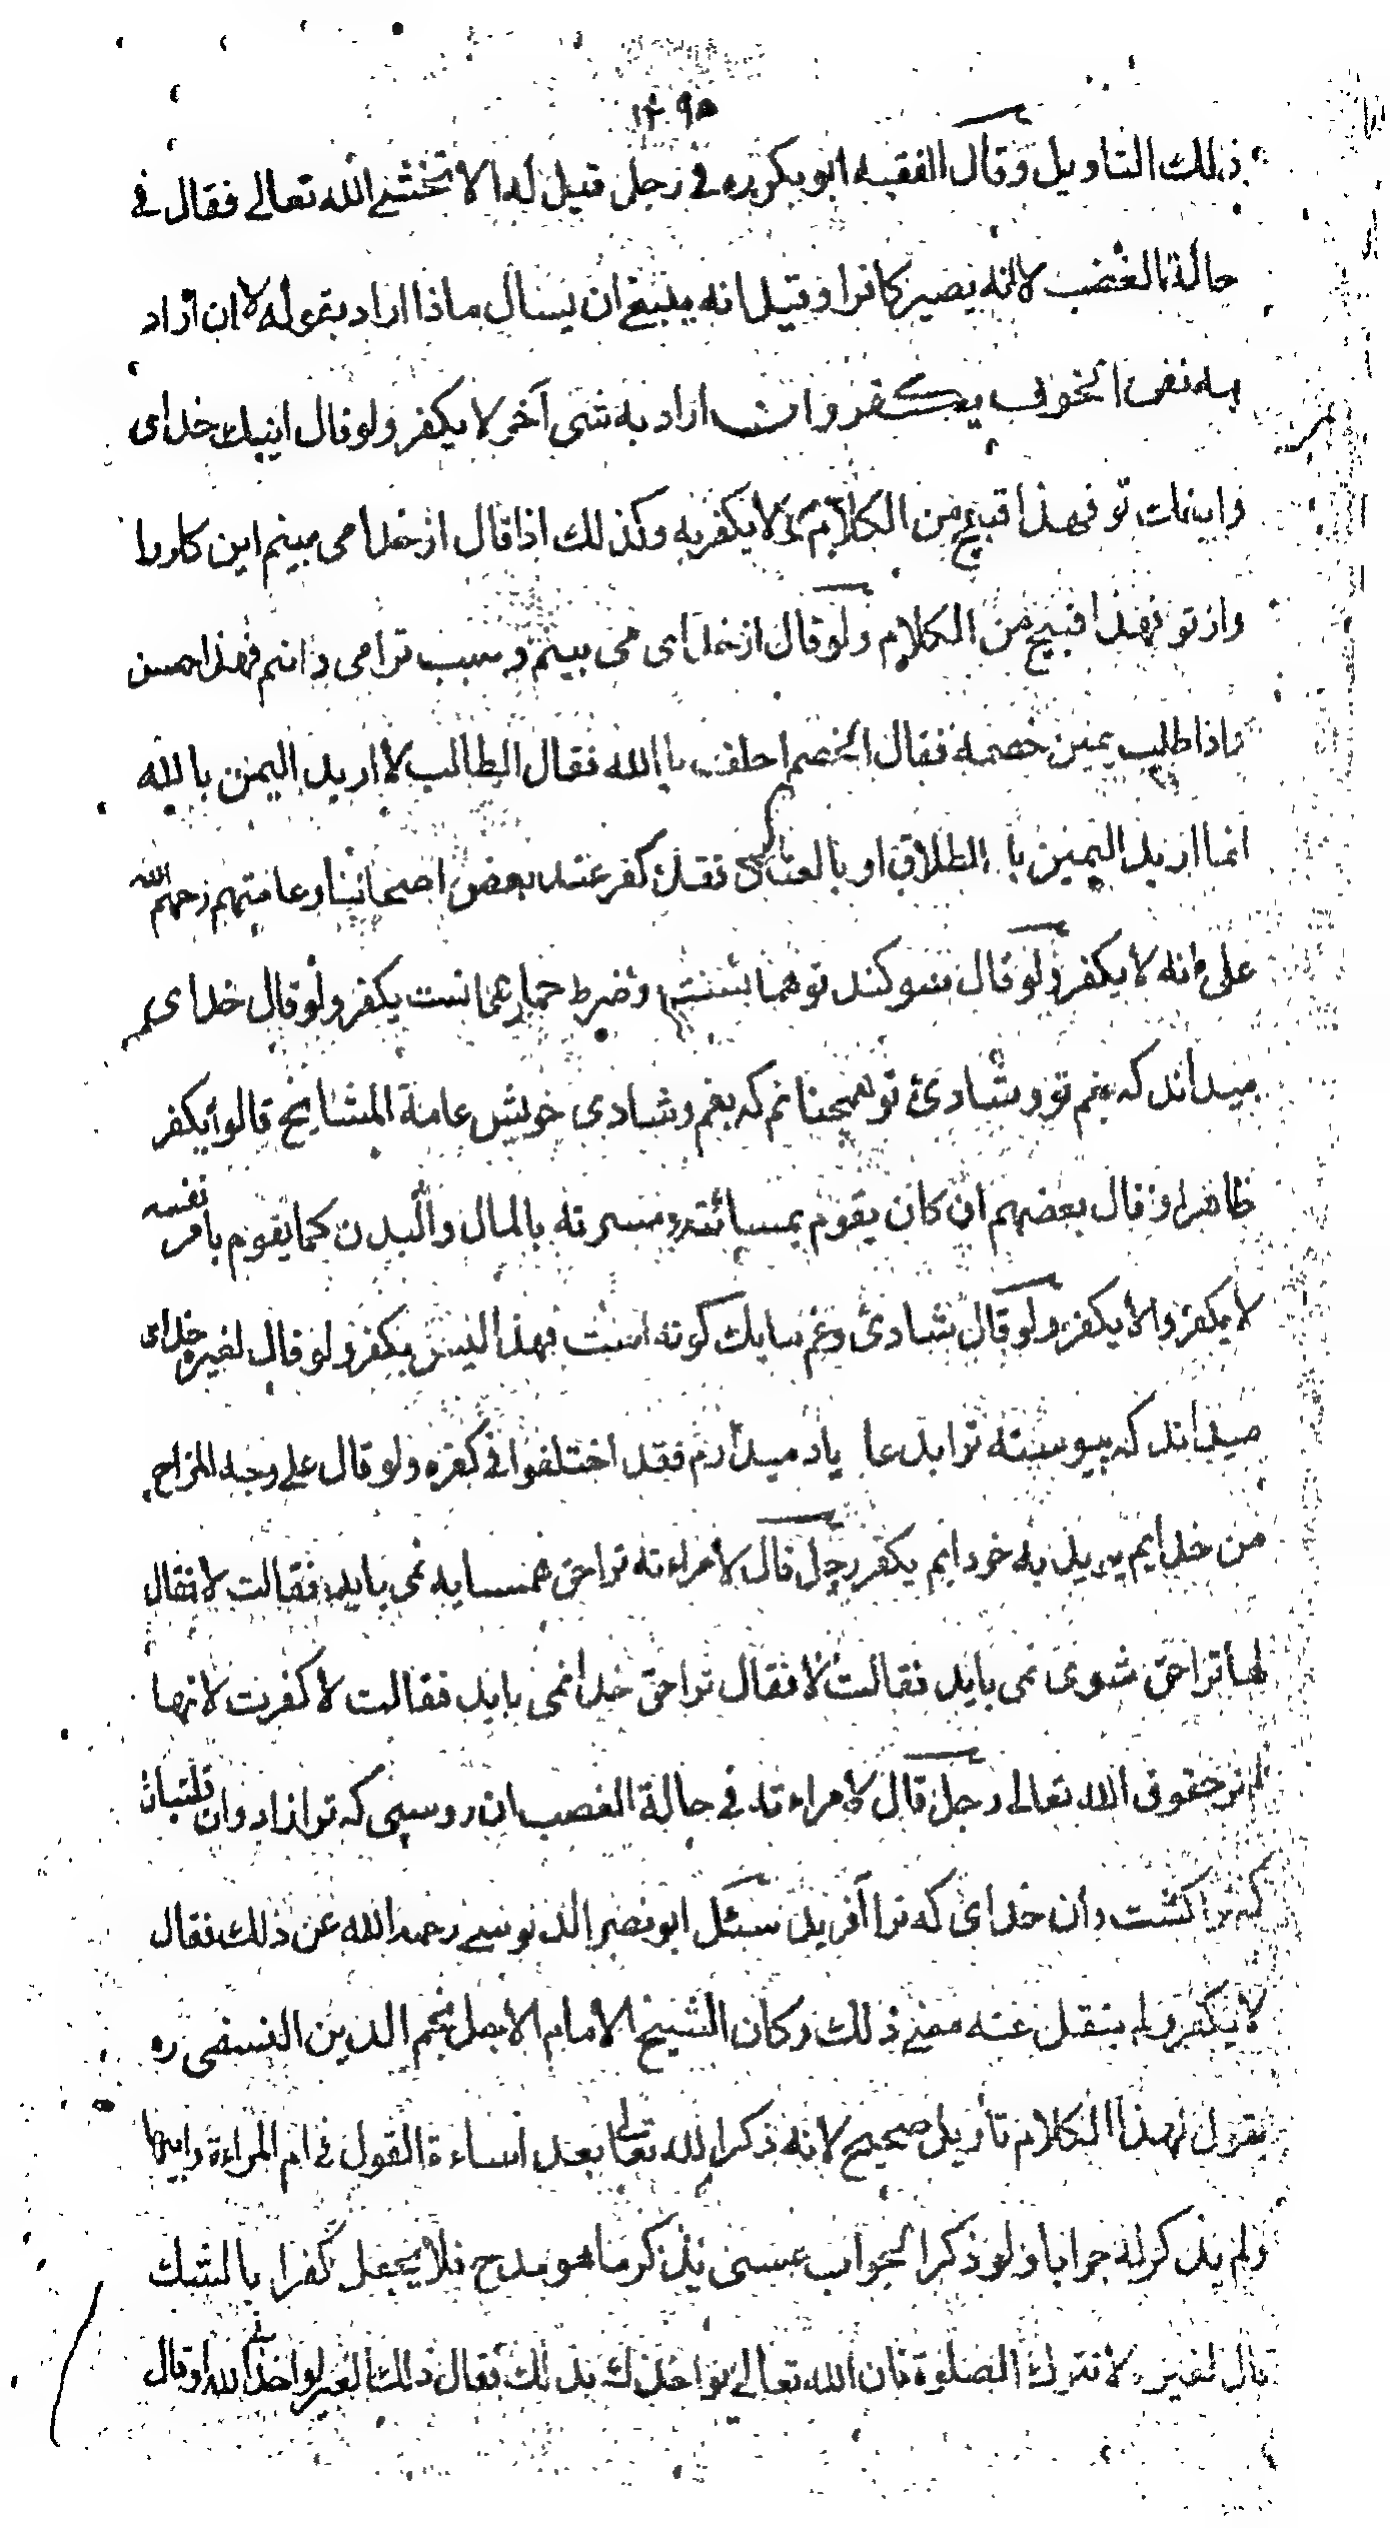 ١٤٩٥
ذلك التاويل وقال الفقيه ابو بكر ره في رجل قيل له الا تخشى الله تعالى فقال في
حالة الغضب لا انه يصير كافرا وقيل انه ينبغي ان يسال ماذا اراد بقوله لا ان اراد
به نفى الخوف يكفر وان اراد به شى آخر لا يكفر ولو قال اينك خداى
واينك تو فهذا قبيح من الكلام لا يكفر به وكذلك اذا قال از خدا مى بينم اين كار را
واز تو فهذا قبيح من الكلام ولو قال از خداى مى بينم وسبب ترا مى دانم فهذا حسن
واذا طلب يمين خصمه فقال الخصم احلف بالله فقال الطالب لا اريد اليمين بالله
انما اريد اليمين با الطلاق او بالعتاق فقد كفر عند بعض اصحابنا وعامتهم رحمهم الله
على انه لا يكفر ولو قال سوكند تو هما نست وضرط حمار همانست يكفر ولو قال خداى
ميداند كه بغم تو وشادئ تو همچنانم كه بغم وشادى خويش عامة المشايخ قالوا يكفر
ظاهرا وقال بعضهم ان كان يقوم بمسائته ومسرته بالمال والبدن كما يقوم بامر نفسه
لا يكفر والا يكفر ولو قال شادئ وغم ما يك كونه است فهذا ليس بكفر ولو قال لغيره خداى
ميداند كه پيوسته ترا بدعا ياد ميدارم فقد اختلفوا في كفره ولو قال على وجه المزاح
من خدايم يريد به خود ايم يكفر رجل قال لامراءته ترا حق همسايه نمى بايد فقالت لا فقال
لها ترا حق شوى نمى بايد فقالت لا فقال ترا حق خدا نمى بايد فقالت لا كفرت لانها
لم تر حقوق الله تعالى رجل قال لامراءته في حالة الغضب ان روسپى كه ترا زاد وان قلتبان
كه ترا كشت وان خداى كه ترا آفريد سئل ابو نصر الدبوسي رحمه الله عن ذلك فقال
لا يكفر ولم ينقل عنه معنى ذلك وكان الشيخ الامام الاجل نجم الدين النسفى ره
يقول لهذا الكلام تأويل صحيح لانه ذكر الله تعالى بعد اساءة القول في ام المراءة وابيها
ولم يذكر له جوابا ولو ذكر الجواب عسى يذكر ما هو مدح فلا يجعل كفرا بالشك
قال لغيره لا تترك الصلوة فان الله تعالى يؤاخذك بذلك فقال ذلك الغير لو اخذني الله اوقال